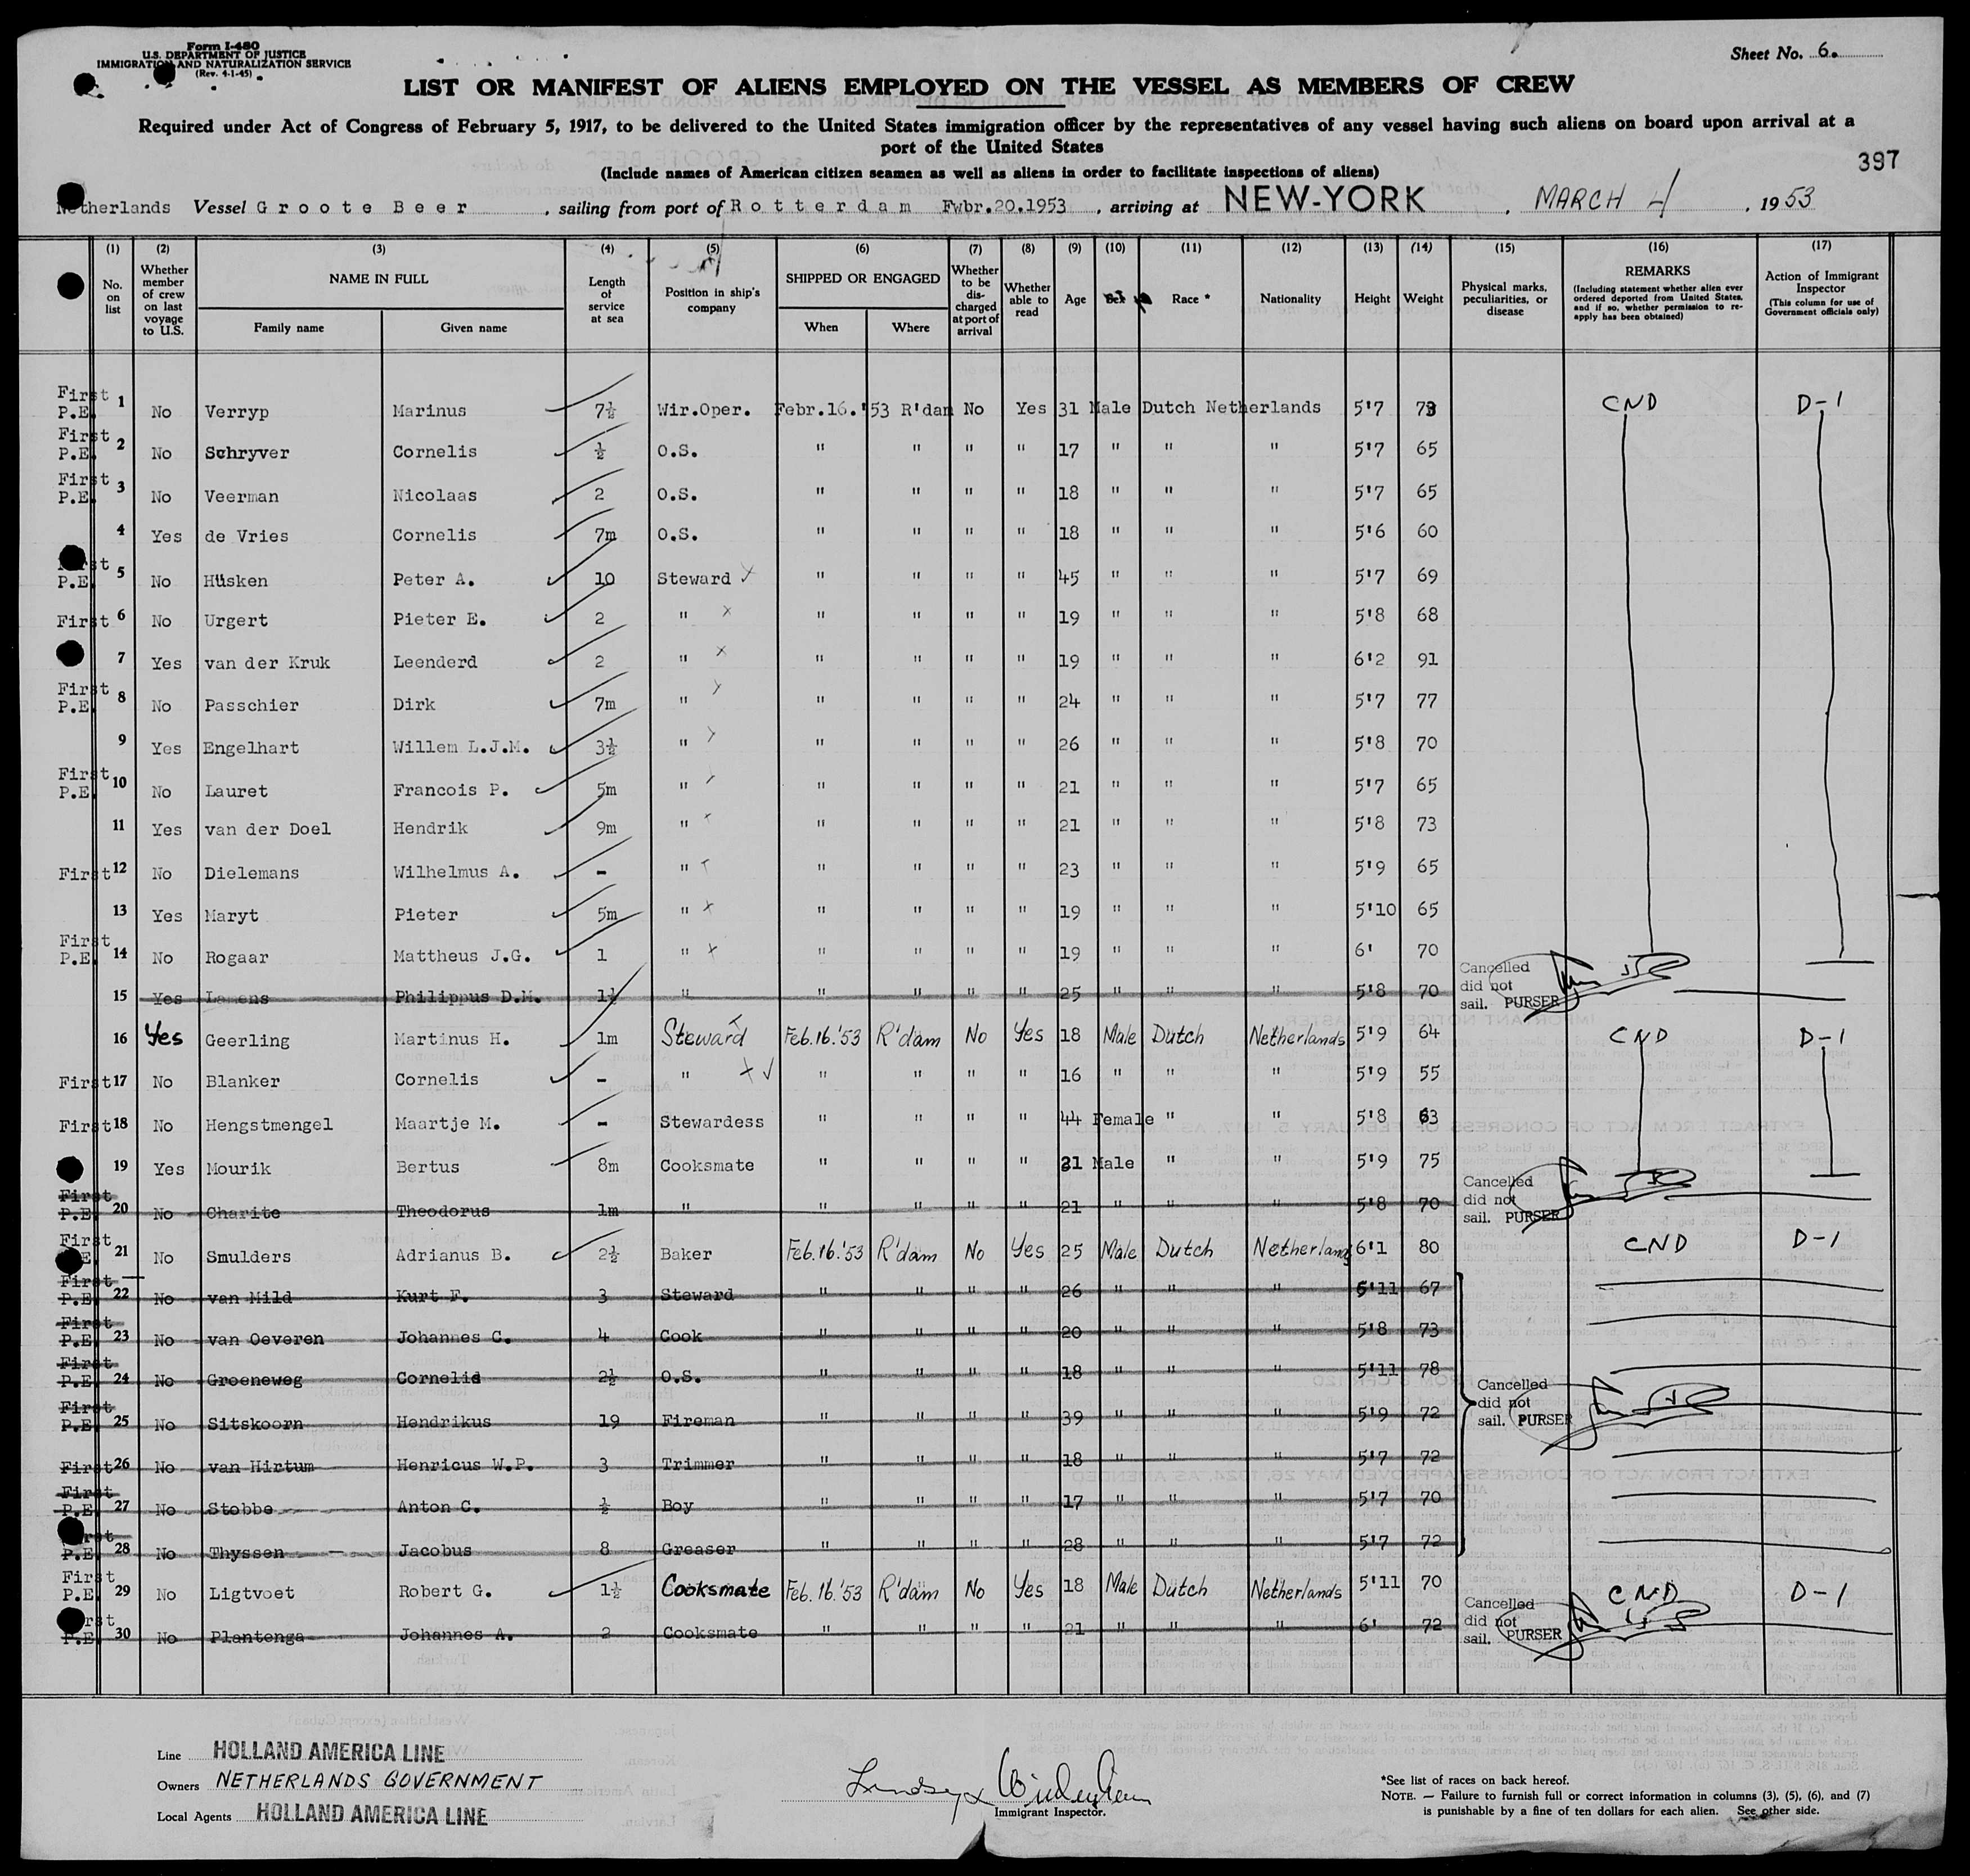 Form I-480
U.S. DEPARTMENT OF JUSTICE
IMMIGRATION AND NATURALIZATION SERVICE
(Rev. 4-1-45)
Sheet No. 6.
LIST OR MANIFEST OF ALIENS EMPLOYED ON THE VESSEL AS MEMBERS OF CREW
Required under Act of Congress of February 5, 1917, to be delivered to the United States immigration officer by the representatives of any vessel having such aliens on board upon arrival at a
port of the United States
(Include names of American citizen seamen as well as aliens in order to facilitate inspections of aliens)
397
Netherlands Vessel Groote Beer, sailing from port of Rotterdam Fwbr.20.1953, arriving at NEW-YORK, MARCH 4, 1953
(1) (2) (3) (4) (5) (6) (7) (8) (9) (10) (11) (12) (13) (14) (15) (16) (17)
No. on list
Whether member of crew on last voyage to U.S.
NAME IN FULL
Family name
Given name
Length of service at sea
Position in ship's company
SHIPPED OR ENGAGED
When
Where
Whether to be discharged at port of arrival
Whether able to read
Age
Sex
Race *
Nationality
Height
Weight
Physical marks, peculiarities, or disease
REMARKS
(Including statement whether alien ever ordered deported from United States, and if so, whether permission to re-apply has been obtained)
Action of Immigrant Inspector
(This column for use of Government officials only)
First P.E. 1 No Verryp Marinus 7½ Wir.Oper. Febr.16.'53 R'dam No Yes 31 Male Dutch Netherlands 5'7 73 CND D-1
First P.E. 2 No Schryver Cornelis ½ O.S. " " " " 17 " " " 5'7 65
First P.E. 3 No Veerman Nicolaas 2 O.S. " " " " 18 " " " 5'7 65
4 Yes de Vries Cornelis 7m O.S. " " " " 18 " " " 5'6 60
First P.E. 5 No Hüsken Peter A. 10 Steward " " " " 45 " " " 5'7 69
First 6 No Urgert Pieter E. 2 " " " " " 19 " " " 5'8 68
7 Yes van der Kruk Leenderd 2 " " " " " 19 " " " 6'2 91
First P.E. 8 No Passchier Dirk 7m " " " " " 24 " " " 5'7 77
9 Yes Engelhart Willem L.J.M. 3½ " " " " " 26 " " " 5'8 70
First P.E. 10 No Lauret Francois P. 5m " " " " " 21 " " " 5'7 65
11 Yes van der Doel Hendrik 9m " " " " " 21 " " " 5'8 73
First 12 No Dielemans Wilhelmus A. - " " " " " 23 " " " 5'9 65
13 Yes Maryt Pieter 5m " " " " " 19 " " " 5'10 65
First P.E. 14 No Rogaar Mattheus J.G. 1 " " " " " 19 " " " 6' 70
15 Yes Philippus D.M. 1½ " " " " " 25 " " " 5'8 70 Cancelled did not sail. PURSER
16 Yes Geerling Martinus H. 1m Steward Feb.16.'53 R'dam No Yes 18 Male Dutch Netherlands 5'9 64 CND D-1
First 17 No Blanker Cornelis - " " " " " 16 " " " 5'9 55
First 18 No Hengstmengel Maartje M. - Stewardess " " " " 44 Female " " 5'8 63
19 Yes Mourik Bertus 8m Cooksmate " " " " 21 Male " " 5'9 75
First P.E. 20 No Charite Theodorus 1m " " " " " 21 " " " 5'8 70 Cancelled did not sail. PURSER
First P.E. 21 No Smulders Adrianus B. 2½ Baker Feb.16.'53 R'dam No Yes 25 Male Dutch Netherlands 6'1 80 CND D-1
First P.E. 22 No van Mild Kurt F. 3 Steward " " " " 26 " " " 5'11 67
First P.E. 23 No van Oeveren Johannes C. 4 Cook " " " " 20 " " " 5'8 73
First P.E. 24 No Groeneweg Cornelis 2½ O.S. " " " " 18 " " " 5'11 78
First P.E. 25 No Sitskoorn Hendrikus 19 Fireman " " " " 39 " " " 5'9 72 Cancelled did not sail. PURSER
First 26 No van Hirtum Henricus W.P. 3 Trimmer " " " " 18 " " " 5'7 72
First P.E. 27 No Stobbe Anton C. ½ Boy " " " " 17 " " " 5'7 70
First P.E. 28 No Thyssen Jacobus 8 Greaser " " " " 28 " " " 5'7 72
First P.E. 29 No Ligtvoet Robert G. 1½ Cooksmate Feb.16.'53 R'dam No Yes 18 Male Dutch Netherlands 5'11 70 CND D-1
First P.E. 30 No Plantenga Johannes A. 2 Cooksmate " " " " 21 " " " 6' 72 Cancelled did not sail. PURSER
Line HOLLAND AMERICA LINE
Owners NETHERLANDS GOVERNMENT
Local Agents HOLLAND AMERICA LINE
Immigrant Inspector.
*See list of races on back hereof.
NOTE. — Failure to furnish full or correct information in columns (3), (5), (6), and (7)
is punishable by a fine of ten dollars for each alien. See other side.